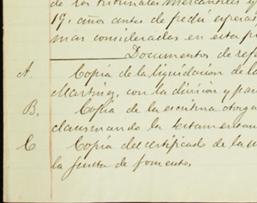 de los Tribunales Mercantiles y
19, años antes de
mas consideradas en esta
Documentos de refe
A. Copia de la liquidacion de la
Martinez, con la division y par
B. Copia de la escritura otorga
clausurando la testamenta
C Copia del certificado de la
la Junta de fomento.